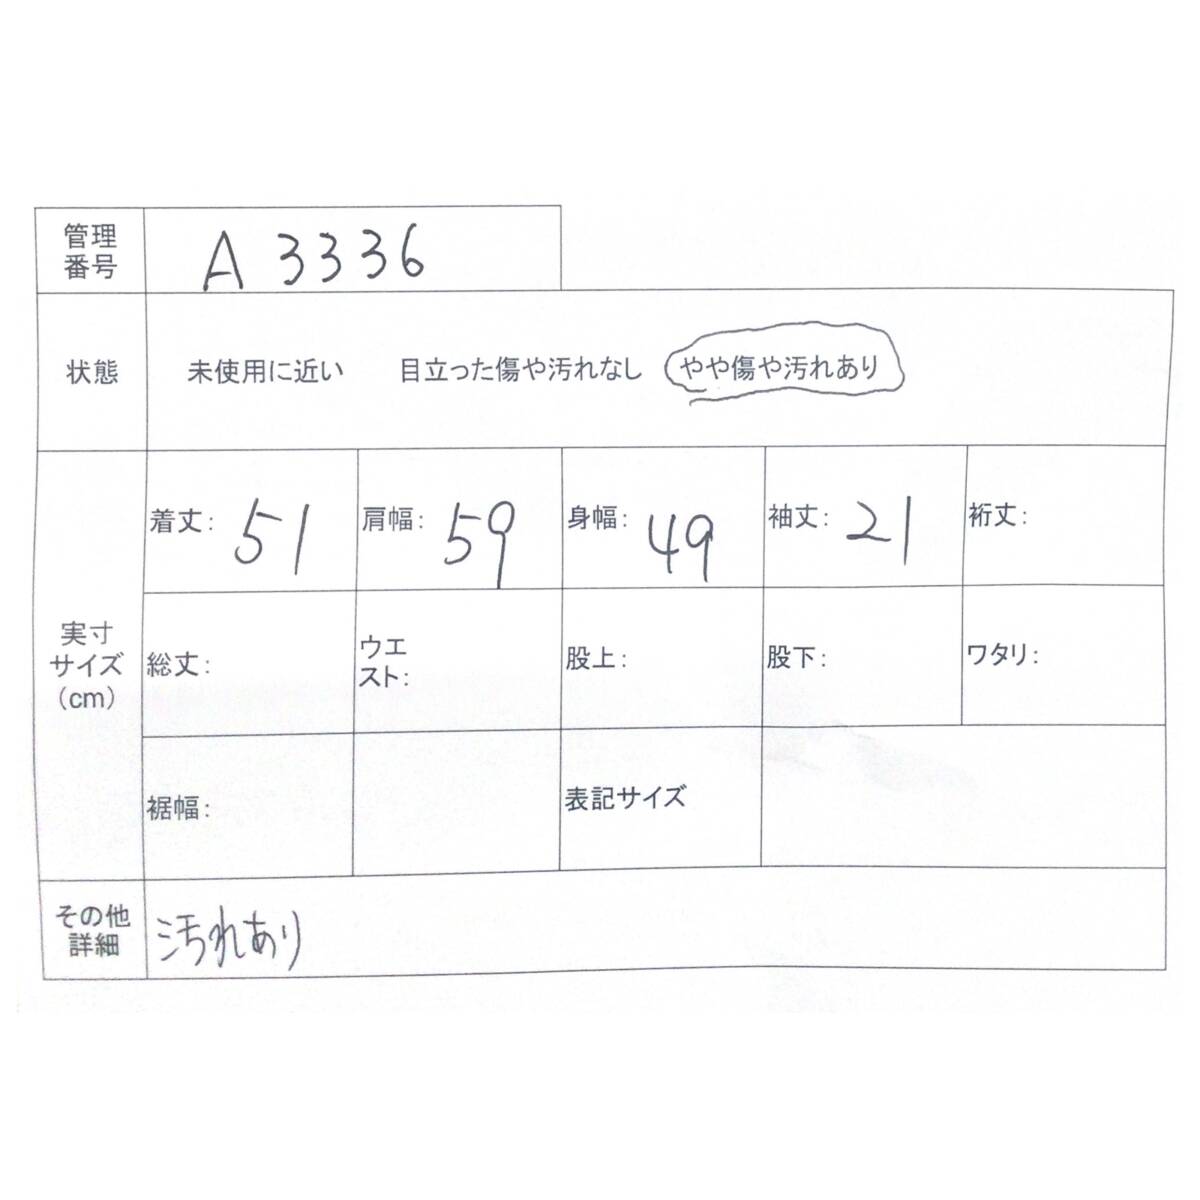 管理
番号
A 3336
状態
未使用に近い 目立った傷や汚れなし やや傷や汚れあり
実寸
サイズ
(cm)
着丈: 51 肩幅: 59 身幅: 49 袖丈: 21 裄丈:
総丈: ウエ
スト: 股上: 股下: ワタリ:
裾幅: 表記サイズ
その他
詳細
汚れあり